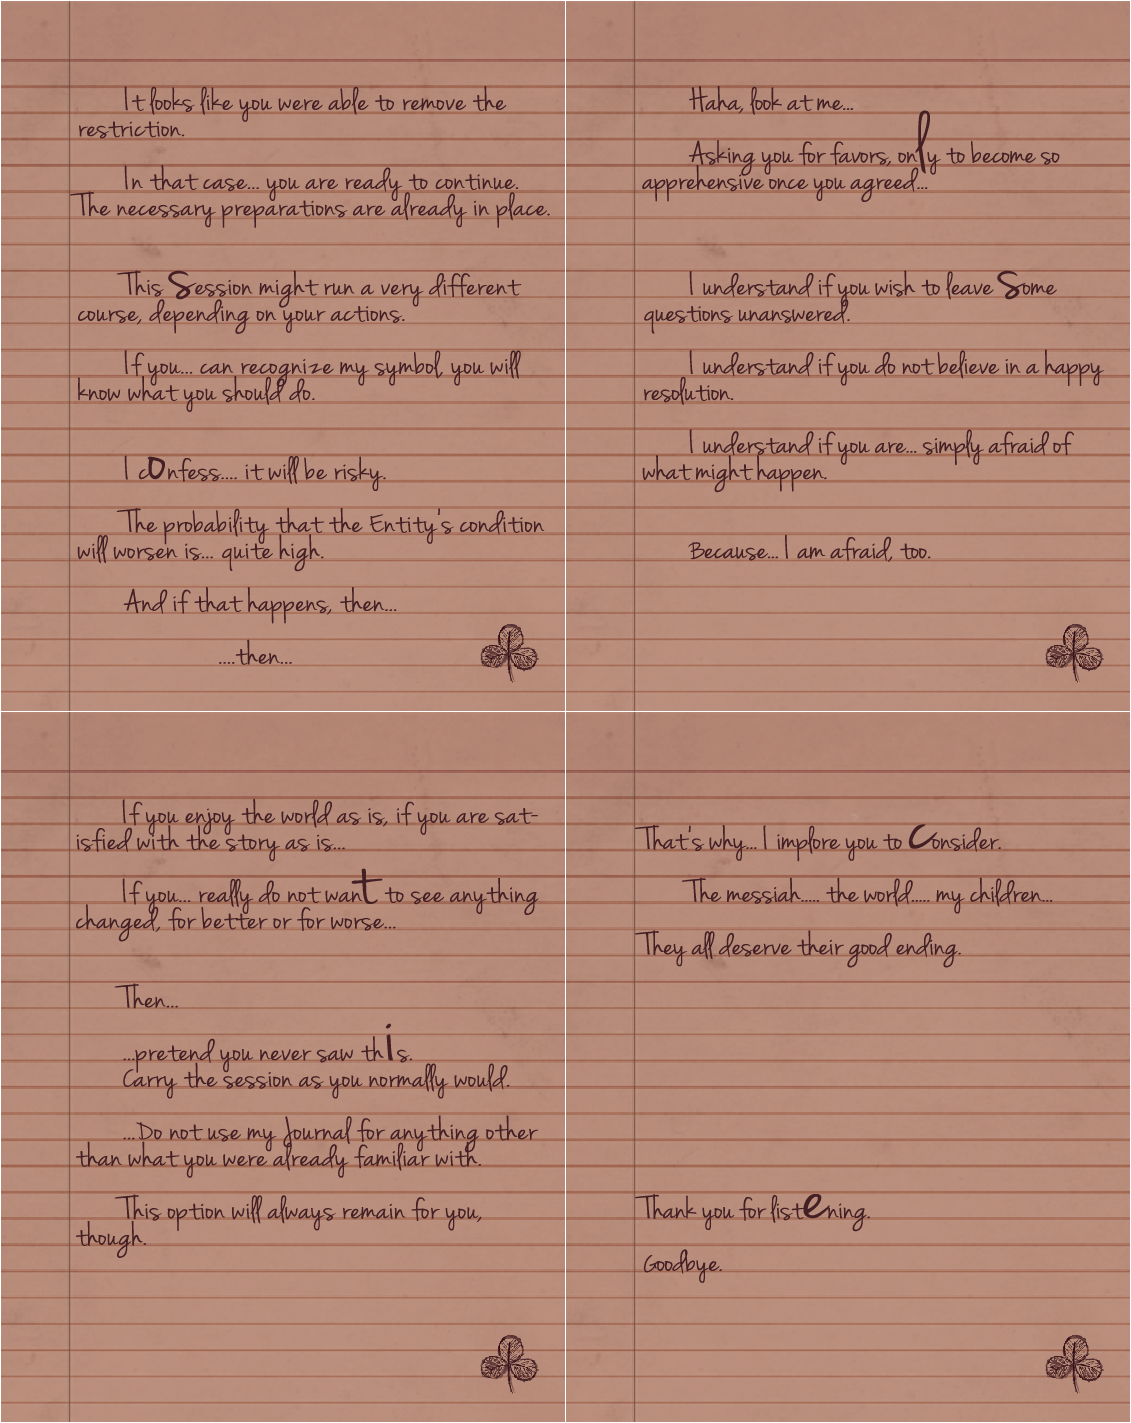 It looks like you were able to remove the
restriction.
In that case... you are ready to continue.
The necessary preparations are already in place.
This Session might run a very different
course, depending on your actions.
If you... can recognize my symbol, you will
know what you should do.
I cOnfess.... it will be risky.
The probability that the Entity's condition
will worsen is... quite high.
And if that happens, then...
....then...
Haha, look at me...
Asking you for favors, only to become so
apprehensive once you agreed...
I understand if you wish to leave Some
questions unanswered.
I understand if you do not believe in a happy
resolution.
I understand if you are... simply afraid of
what might happen.
Because... I am afraid, too.
If you enjoy the world as is, if you are sat-
isfied with the story as is...
If you... really do not want to see anything
changed, for better or for worse...
Then...
...pretend you never saw this.
Carry the session as you normally would.
...Do not use my Journal for anything other
than what you were already familiar with.
This option will always remain for you,
though.
That's why... I implore you to Consider.
The messiah..... the world..... my children...
They all deserve their good ending.
Thank you for listening.
Goodbye.